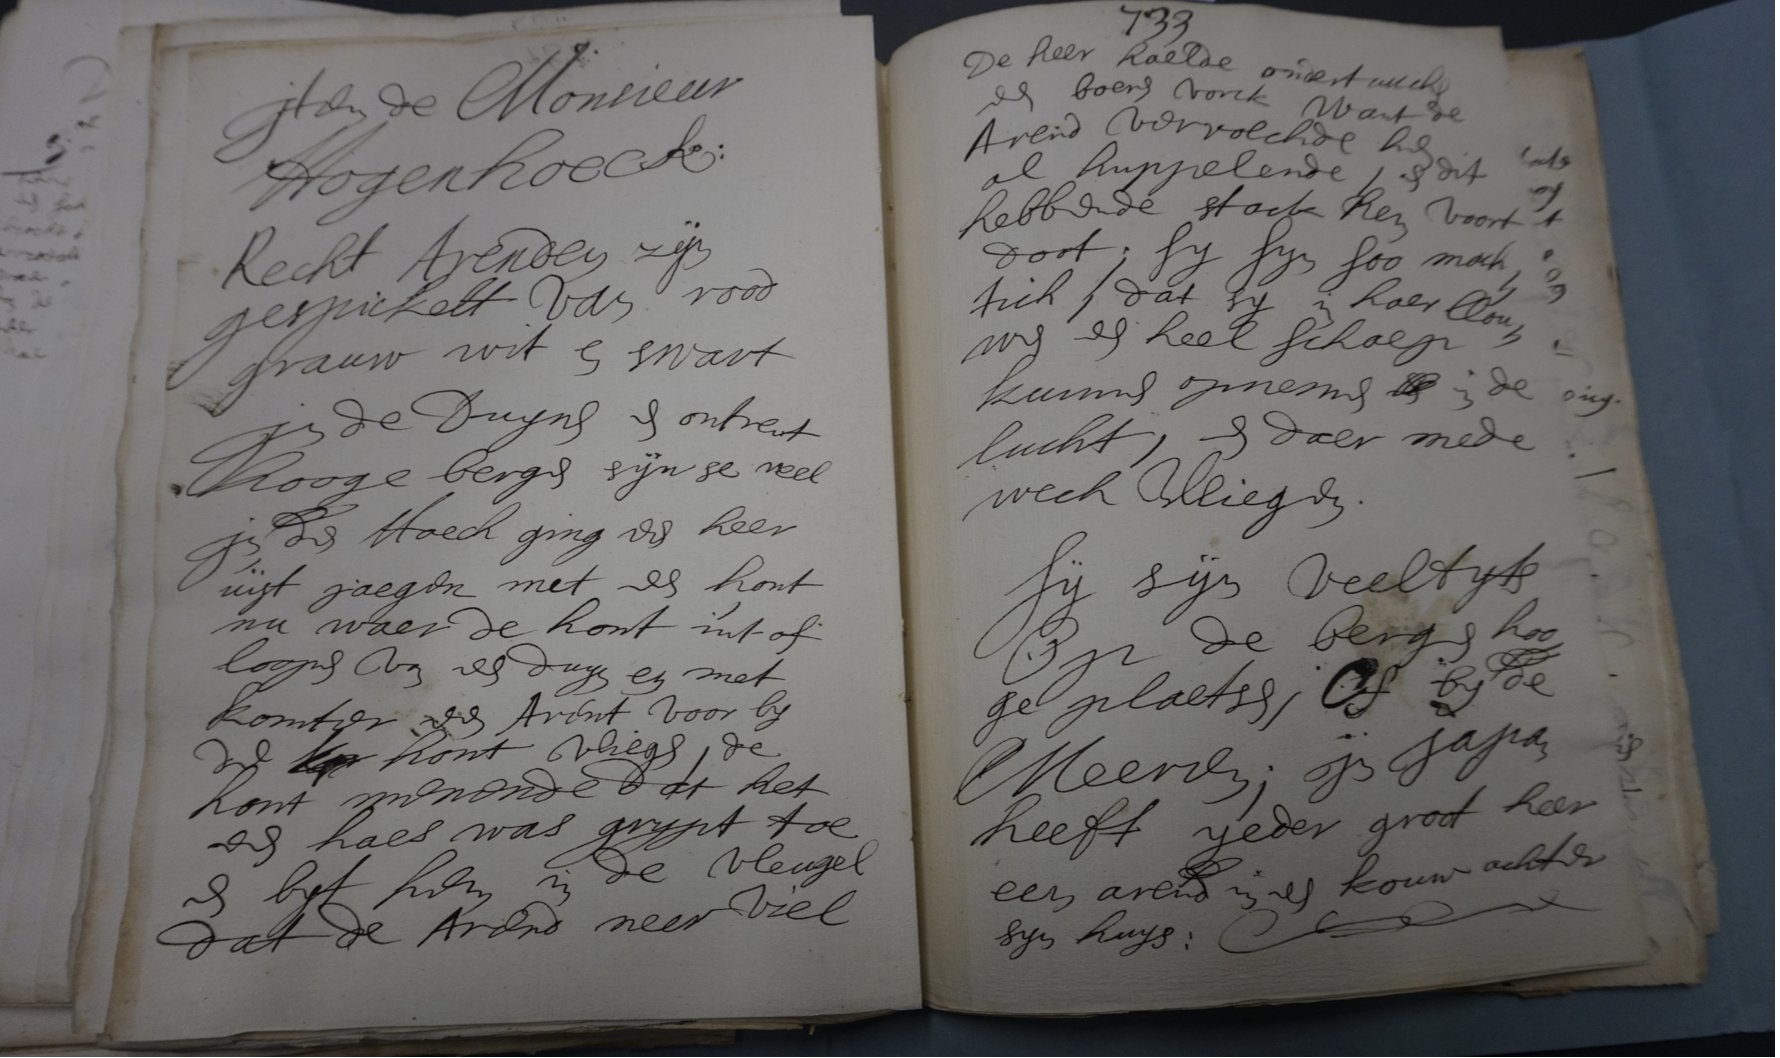 jtem de Monsieur
Hogenhoeck:
Recht Arenden zijn
gespickelt van rood
grauw wit en swart
jn de Duynen en ontrent
hooge bergen sijn se veel
jn den Haech ging een heer
uijt jaegen met een hont
nu waer de hont in't of
loopen van een duyn en met
komter een Arent voor by
de hont vliegen, de
hont menende dat het
een haes was grypt toe
en byt hem in de vleugel
dat de Arend neer viel
733
De heer haelde ondertusschen
een boere vorck want de
Arend vervolchde hem
al huppelende, en dit
hebbende stack hem voort
doot; sy syn soo mach,
tich, dat sy in haer Clou,
wen een heel schaep
kunnen opnemen in de
lucht, en daer mede
wech vliegen.
Sy sijn veeltyts
Op de bergen hoo
ge plaetsen, Of by de
Meeren; jn japan
heeft yeder groot heer
een arend in een kouw achter
syn huys: